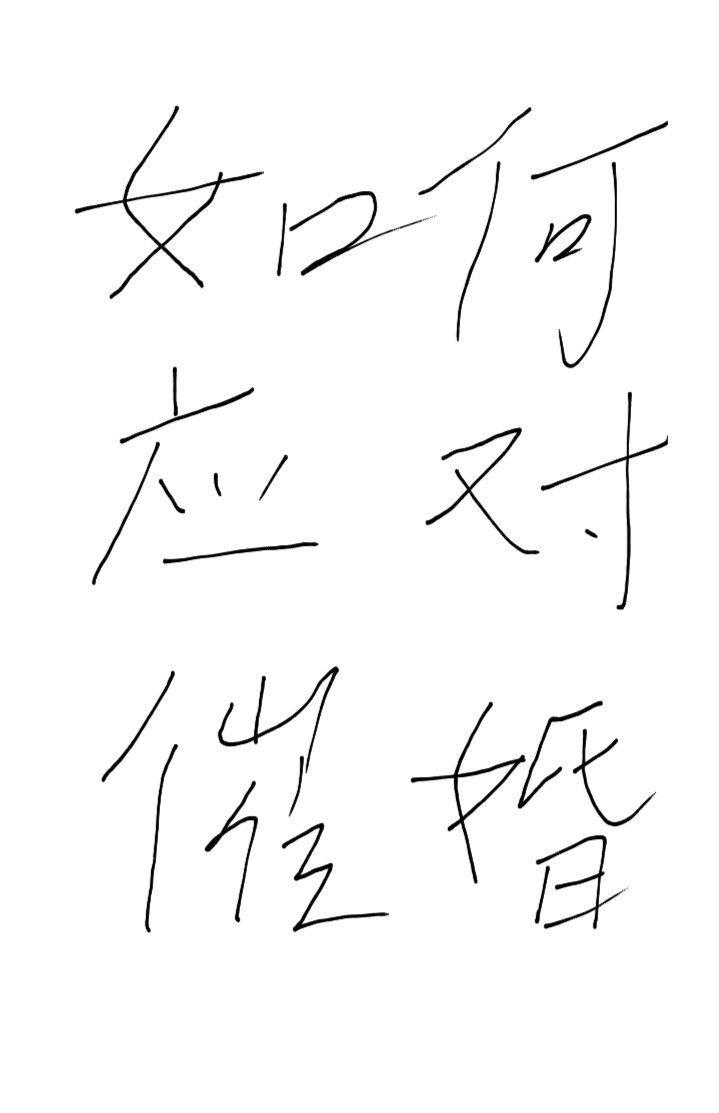 如何
应对
催婚